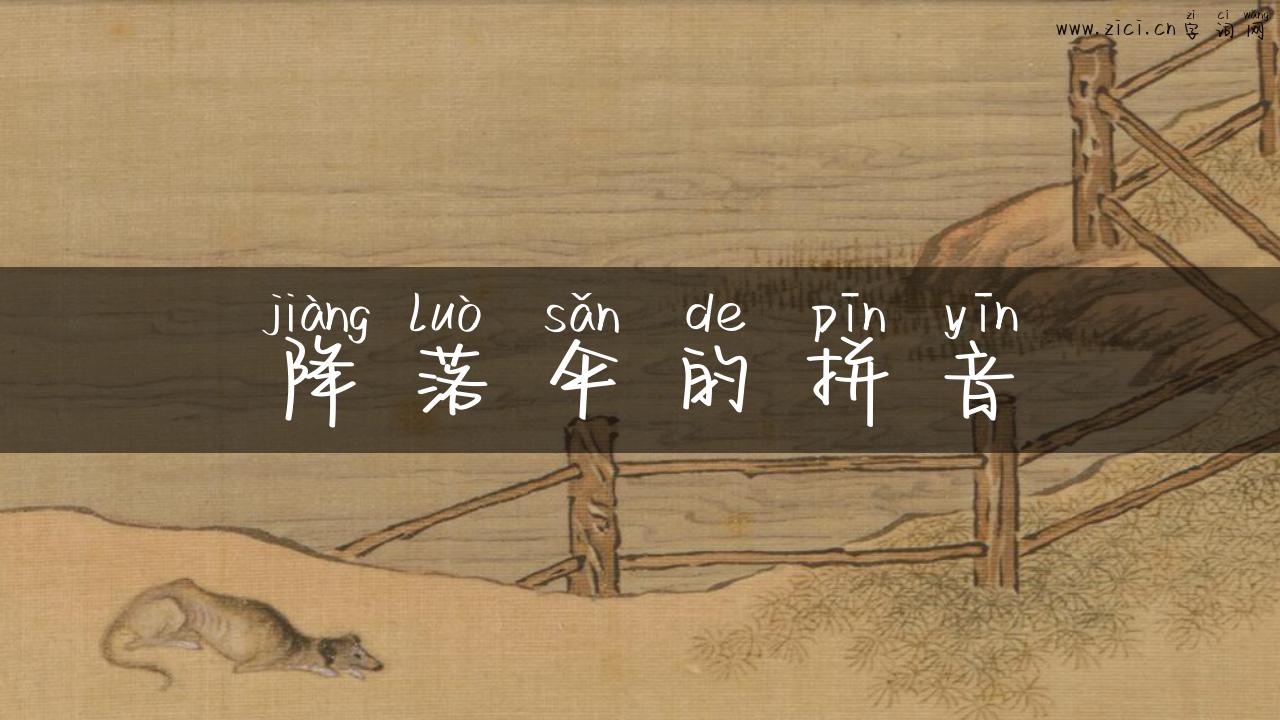 zì cí wǎng
www.zici.cn 字词网
jiàng luò sǎn de pīn yīn
降落伞的拼音